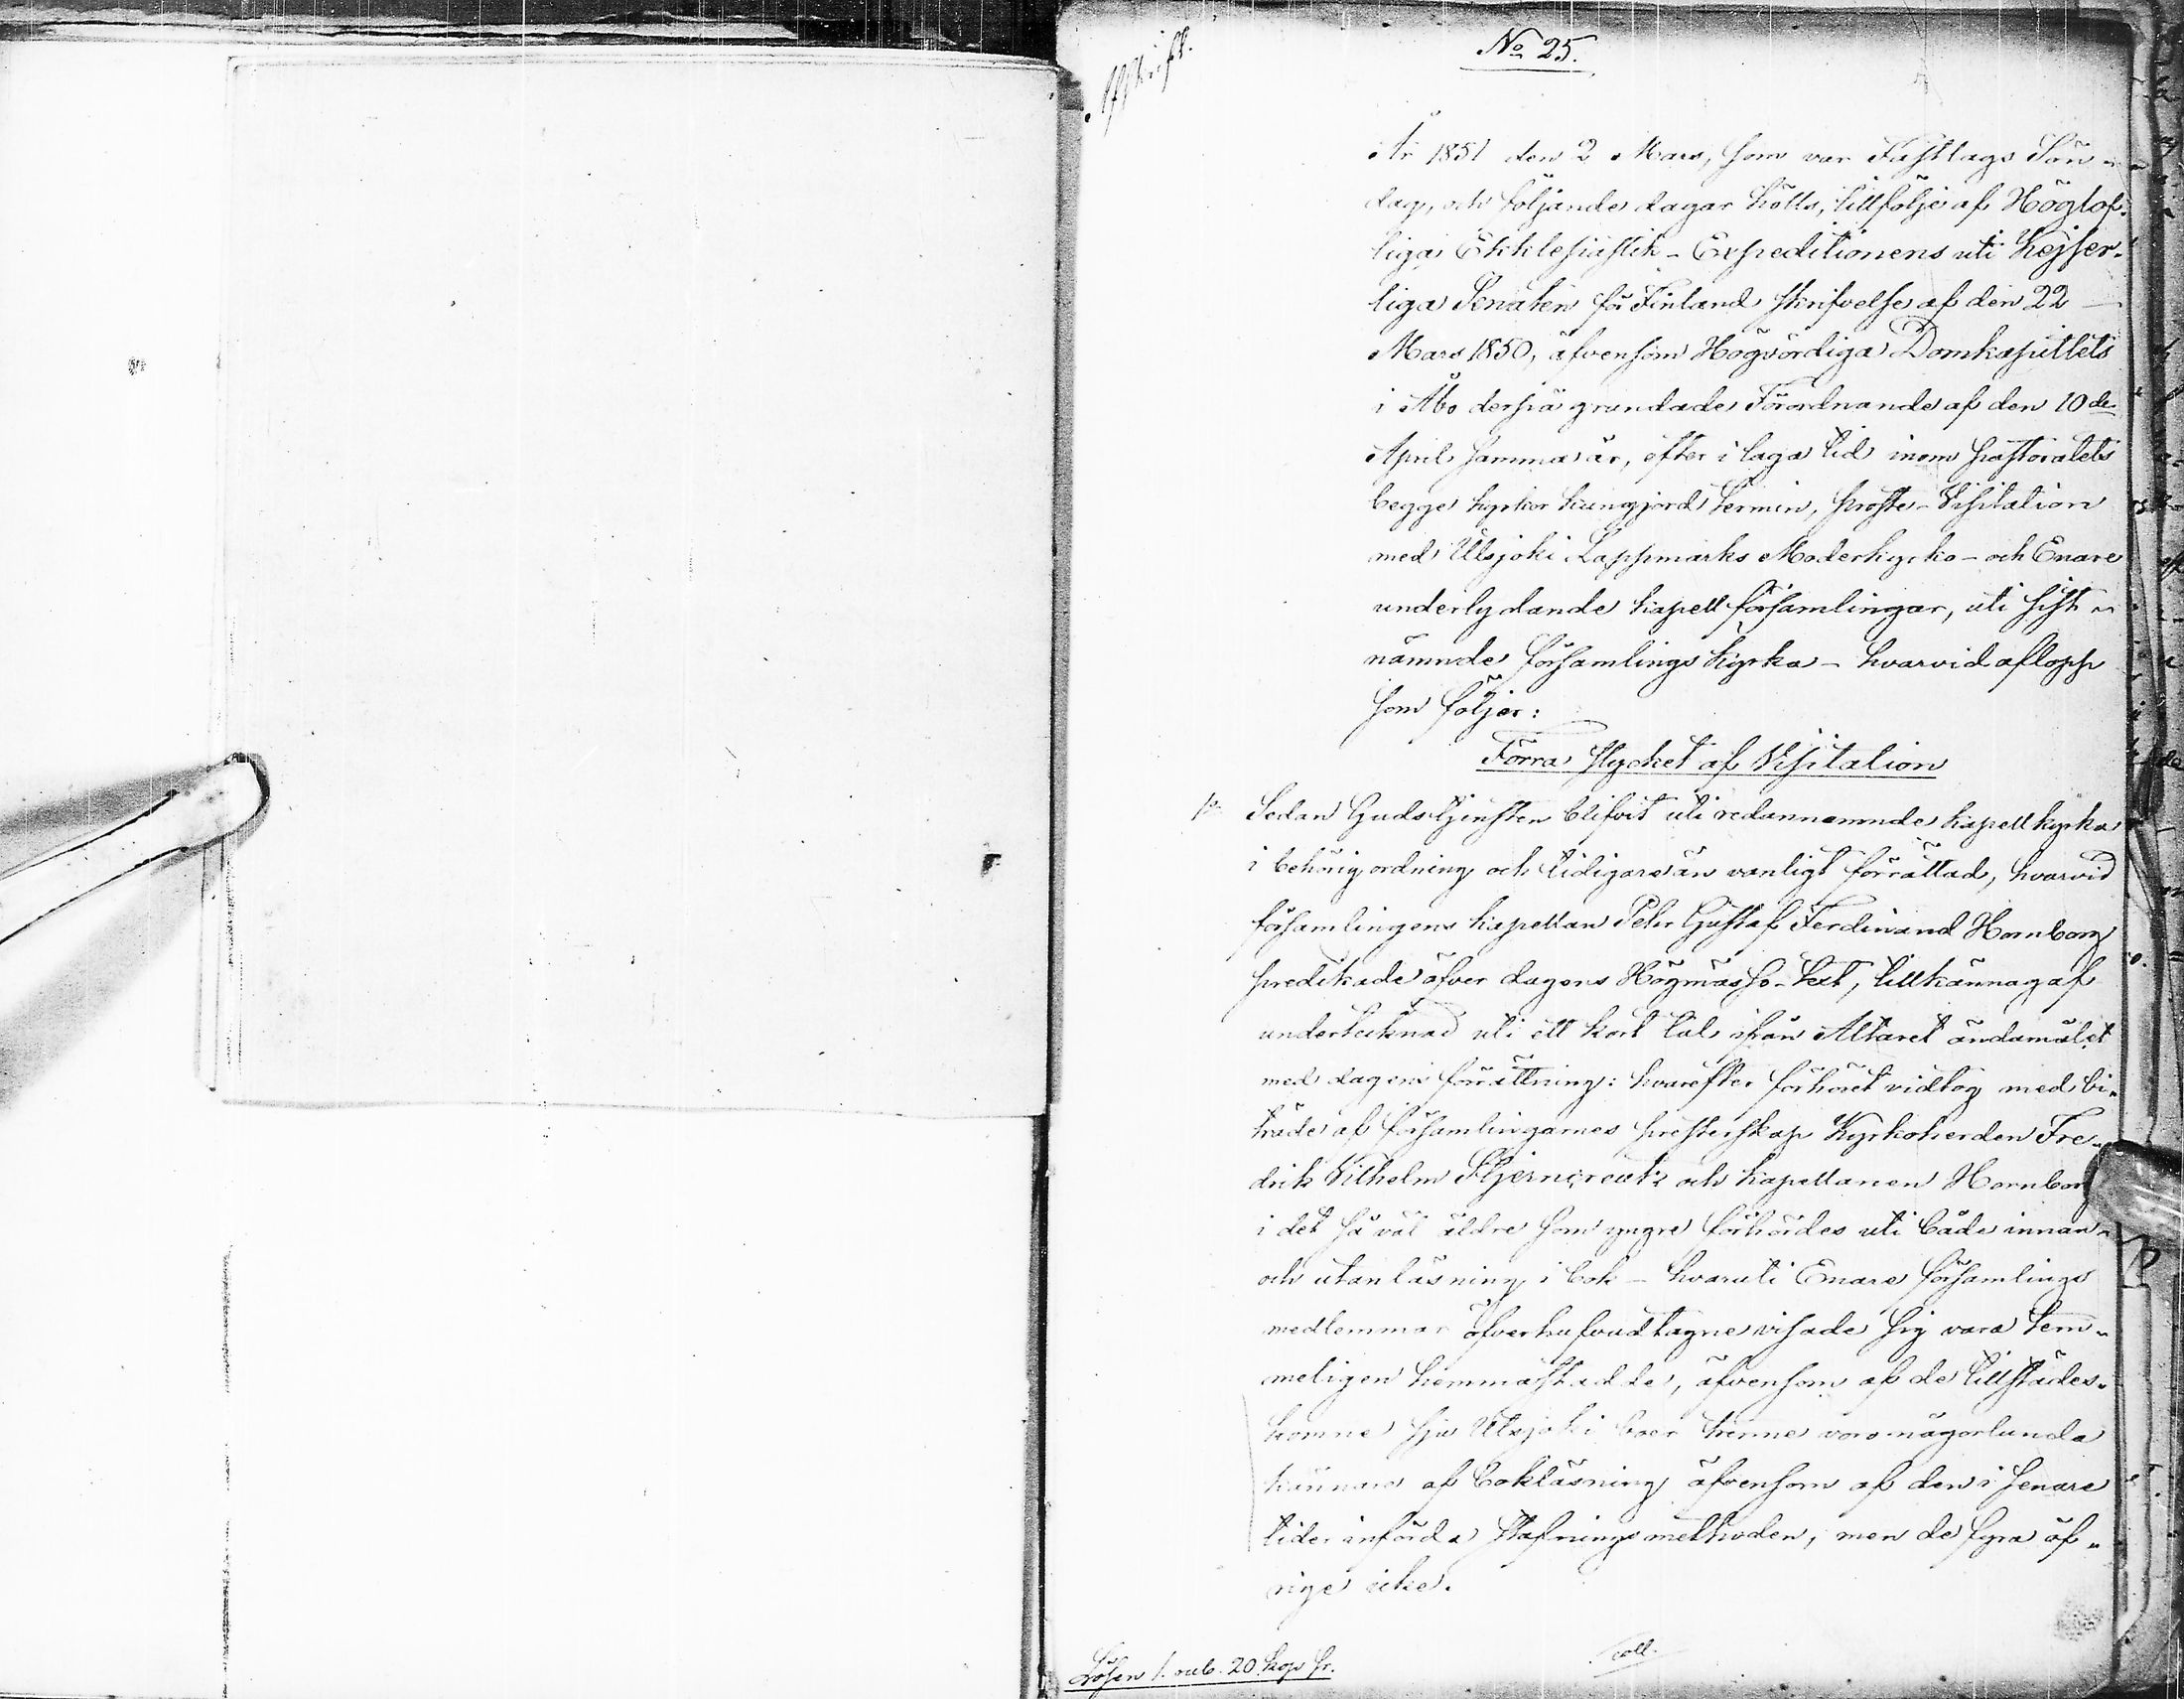 Afskrift.
No 25.
År 1851 den 2 Mars, som var Fastlags Sön-
dag, och följande dagar hölls, tillfölje af Höglof-
liga Ekklesiastik-Expeditionens uti Kejser-
liga Senaten för Finland skrifvelse af den 22
Mars 1850, äfvensom Högvördiga Domkapitlets
i Åbo derpå grundade Förordnande af den 10de
April samma år, efter i laga tid inom pastoratets
begge kyrkor kungjord termin, proste-Visitation
med Utsjoki Lappmarks Moderkyrko- och Enare
underlydande kapellförsamlingar, uti sist-
nämnde församlings kyrka - hvarvid aflopp
som följer:
Förra stycket af Visitation
1o Sedan Gudstjensten blifvit uti redannämnde kapellkyrka
i behörig ordning och tidigare än vanligt förrättad, hvarvid
församlingens kapellan Pehr Gustaf Ferdinand Hornborg
predikade öfver dagens Högmässo-text, tillkännagaf
undertecknad uti ett kort tal ifrån Altaret ändamålet
med dagens förrättning: hvarefter förhöret vidtog med bi-
träde af församlingarnes presterskap Kyrkoherden Fre-
drik Vilhelm Stjerncreutz och kapellanen Hornborg
i det så väl äldre som yngre förhördes uti både innan-
och utanläsning i bok - hvaruti Enare församlings
medlemmar öfverhufvudtagne visade sig vara tem-
meligen hemmastadde, äfvensom af de tillstädes-
komne sju Utsjoki boer trenne voro någorlunda
kunnare af bokläsning äfvensom af den i senare
tider införda stafningsmethoden, men de fyra öf-
rige icke.
Lösen 1. rub. 20 kop. sr.
coll.